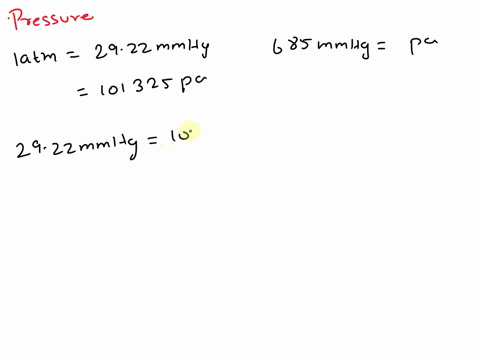 Pressure
1atm = 29.22 mmHg
= 101325 pa
685 mmHg = pa
29.22 mmHg = 10